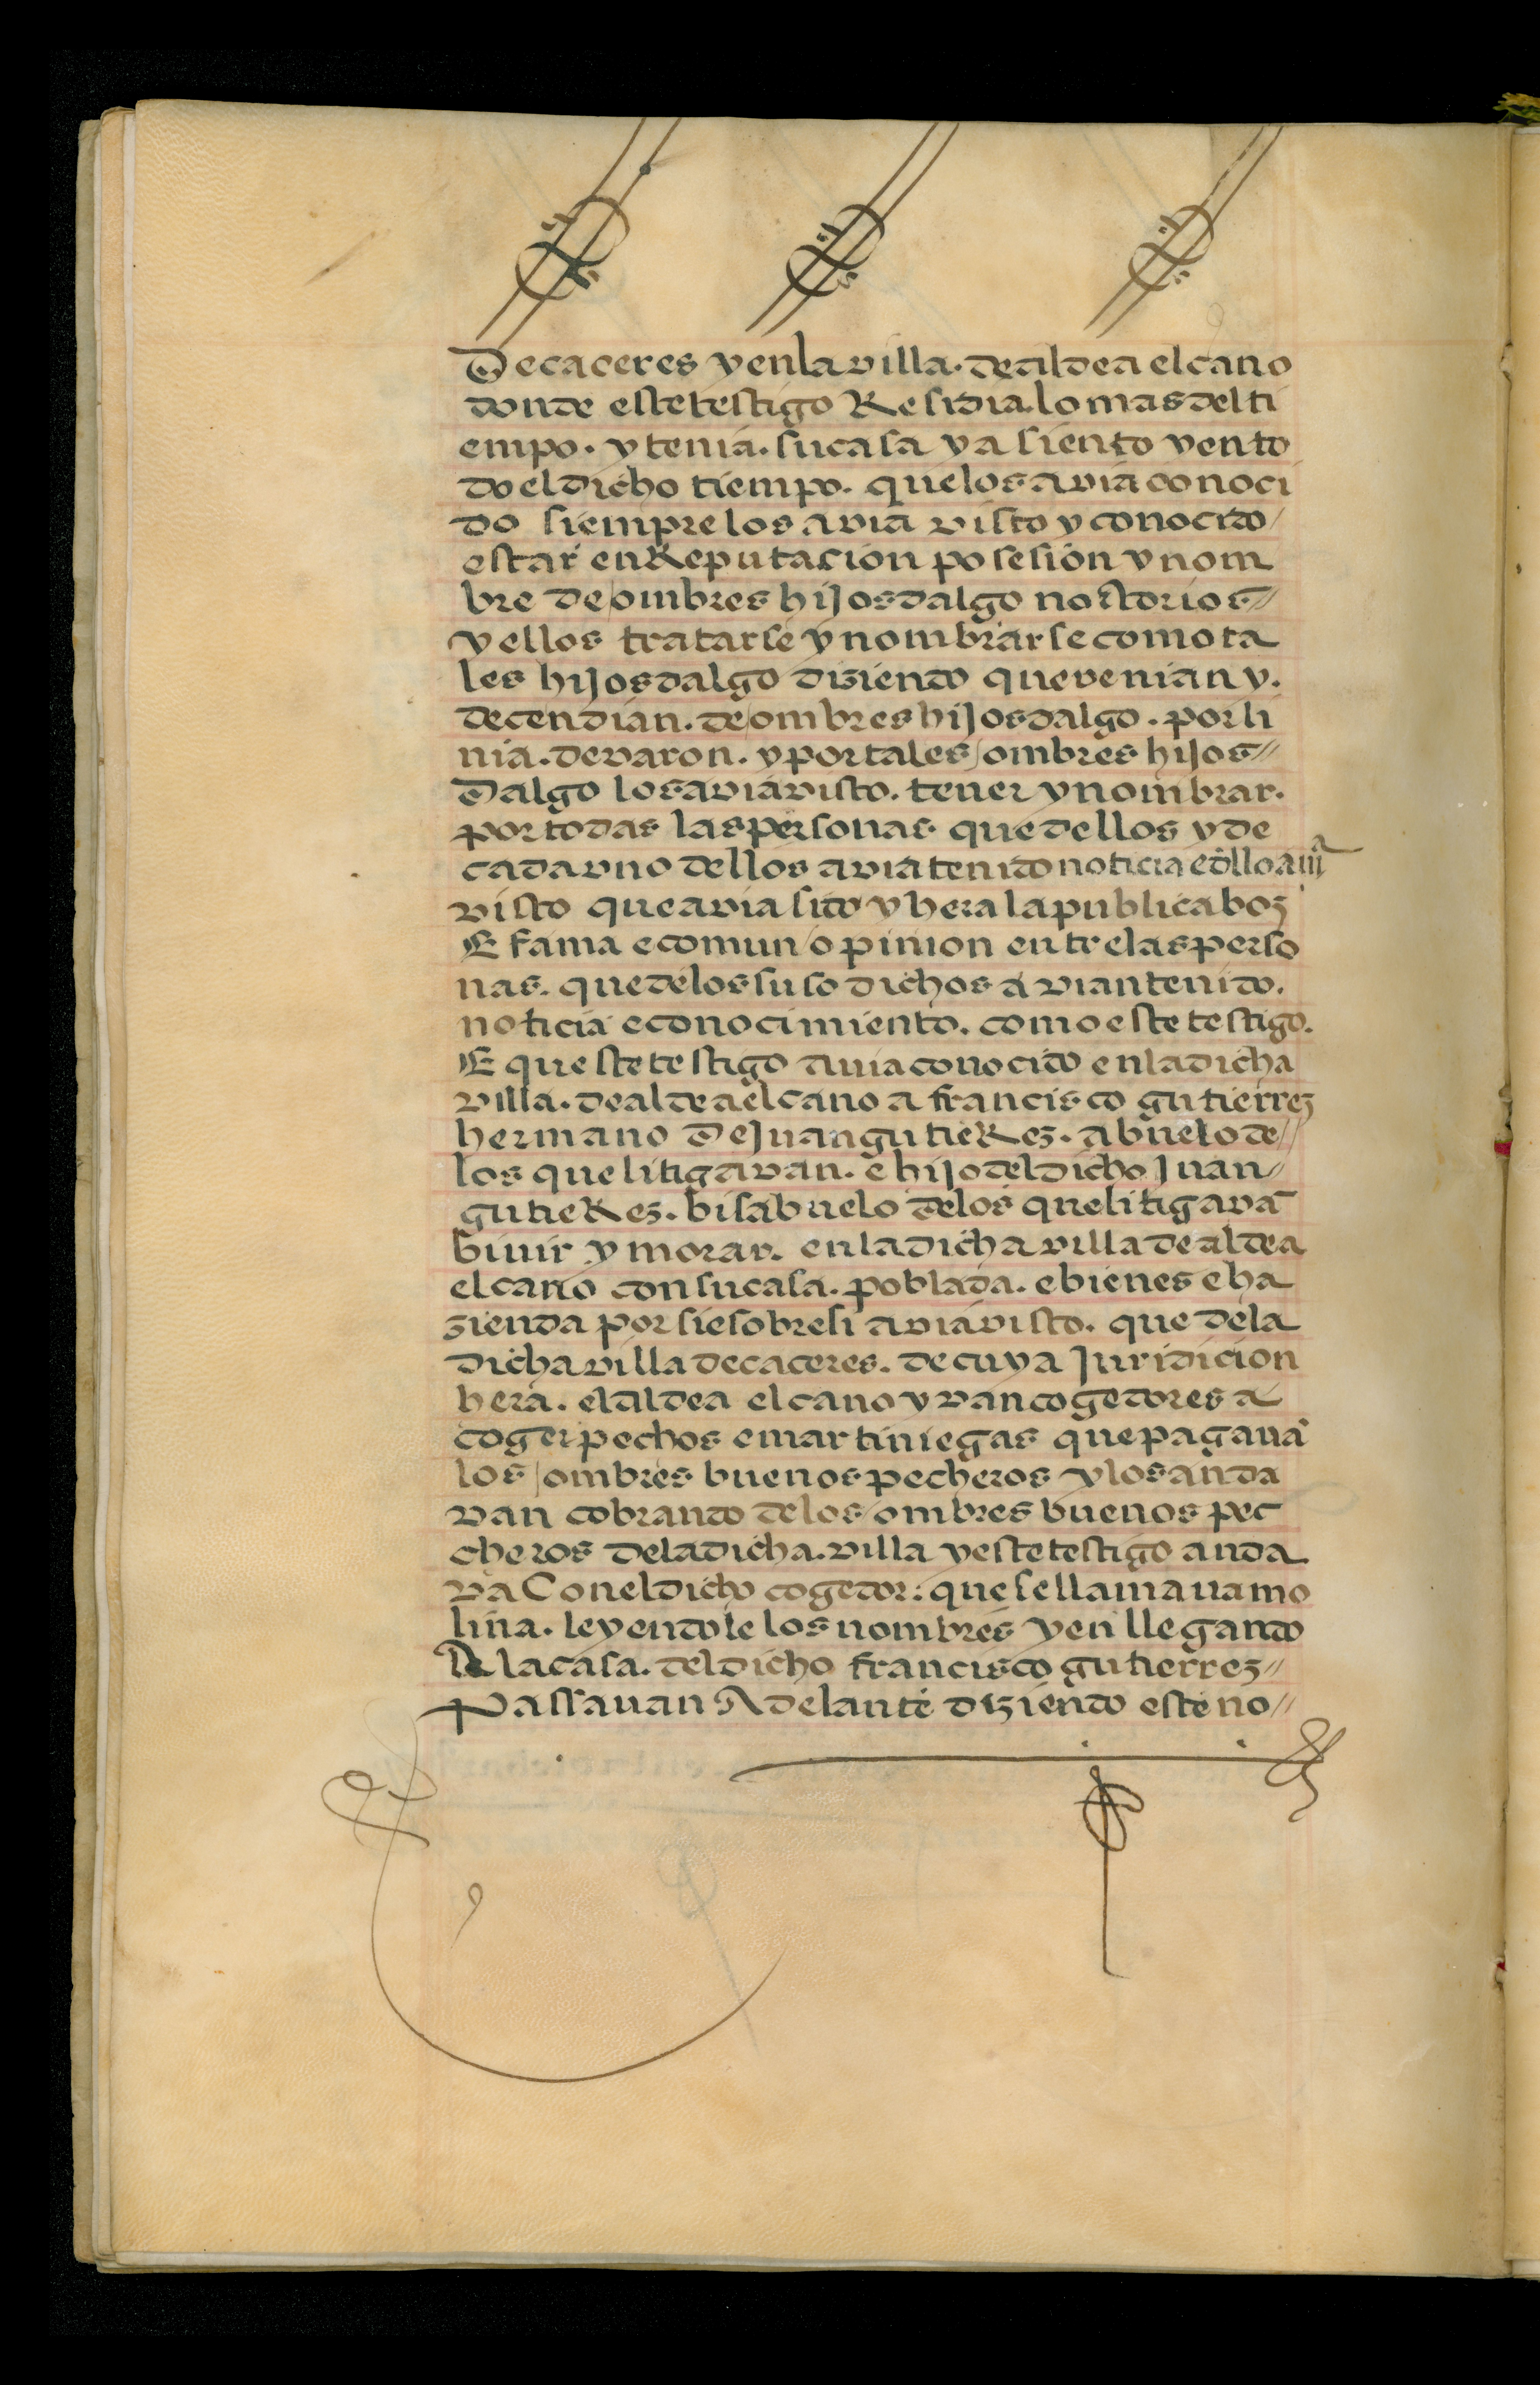 De caceres y en la villa. de aldea el cano
donde este testigo Residia. lo mas del ti
empo. y tenia. su casa y asiento y en to
do el dicho tiempo. que los avia conoci
do siempre los avia visto y conocido/
estar en Reputacion posesion y nom
bre de ombres hijosdalgo nottorios//
y ellos tratarse y nombrarse como ta
les hijosdalgo diziendo que venian y.
decendian. de ombres hijosdalgo. por li
nia. de varon. y por tales ombres hijos//
Dalgo los avia visto. tener y nombrar.
por todas las personas que dellos y de
cada vno dellos avia tenido noticia e dello avia
visto que avia sido y hera la publica boz
E fama e comun opinion entre las perso
nas. que de los suso dichos avian tenido.
noticia e conocimiento. como este testigo.
E queste testigo auia conocido en la dicha
villa. de aldea el cano a francisco gutierrez
hermano De Juan gutieRez. abuelo de//
los que litigavan. e hijo del dicho Juan//
gutieRez. bisabuelo de los que litigavā
biuir y morar. en la dicha villa de aldea
el cano con su casa. poblada. e bienes e ha
zienda por si e sobre si avia visto. que de la
dicha villa de caceres. de cuya Juridicion
hera. el aldea el cano yvan cogedores a
coger pechos e martiniegas que pagauā
los ombres buenos pecheros y los anda
van cobrando de los ombres buenos pec
cheros de la dicha. villa y este testigo anda
va Con el dicho cogedor: que se llamaua mo
lina. leyendole los nombres y en llegando
A la casa. del dicho francisco gutierrez//
Passauan Adelante diziendo este no//